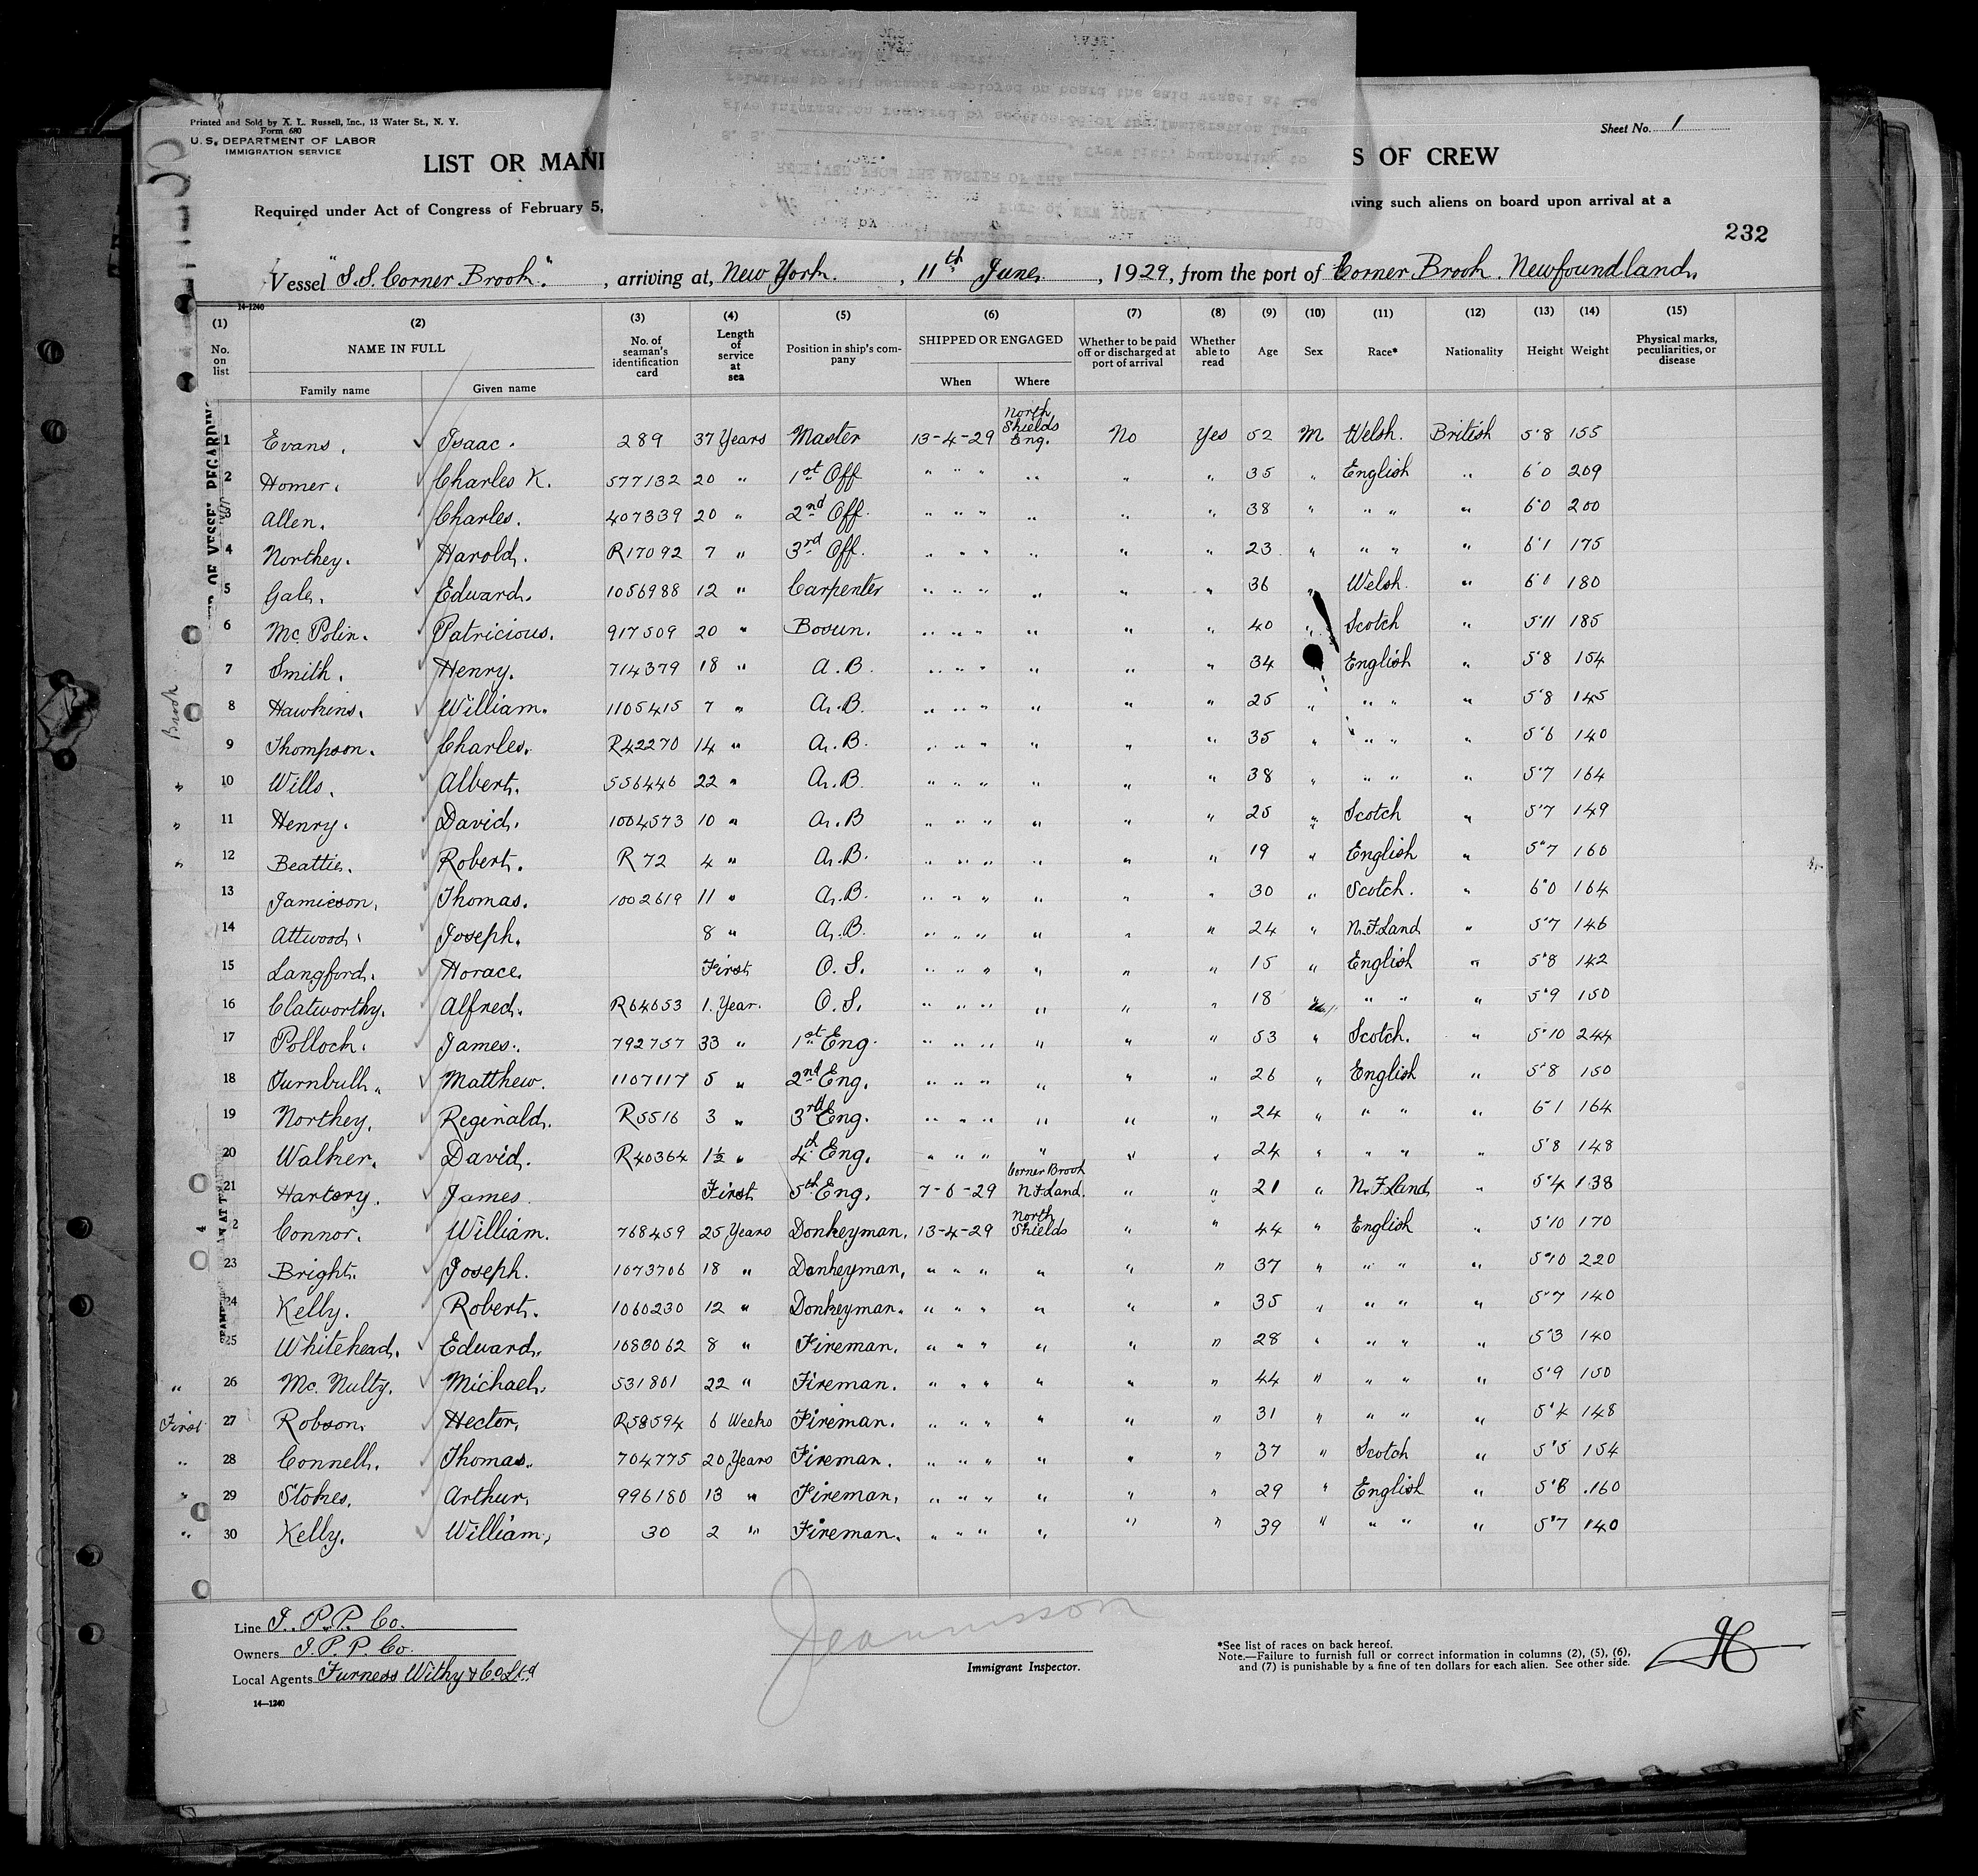 Printed and Sold by X. L. Russell, Inc., 13 Water St., N. Y.
Form 680
U. S. DEPARTMENT OF LABOR
IMMIGRATION SERVICE
Sheet No. 1
LIST OR MANI S OF CREW
Required under Act of Congress of February 5, ving such aliens on board upon arrival at a
232
Vessel "S.S. Corner Brook.", arriving at, New York., 11th June, 1929, from the port of Corner Brook. Newfoundland.
14-1240
(1) (2) (3) (4) (5) (6) (7) (8) (9) (10) (11) (12) (13) (14) (15)
No. on list NAME IN FULL Family name Given name No. of seaman's identification card Length of service at sea Position in ship's company SHIPPED OR ENGAGED When Where Whether to be paid off or discharged at port of arrival Whether able to read Age Sex Race* Nationality Height Weight Physical marks, peculiarities, or disease
1 Evans. Isaac. 289 37 Years Master 13-4-29 North Shields Eng. No Yes 52 M Welsh. British 5'8 155
2 Homer. Charles K. 577132 20 " 1st Off " " " " " " 35 " English " 6'0 209
3 Allen. Charles. 407339 20 " 2nd Off. " " " " " " 38 " " " " 6'0 200
4 Northey. Harold. R17092 7 " 3rd Off. " " " " " " 23 " " " " 6'1 175
5 Gale. Edward. 1056988 12 " Carpenter " " " " " " 36 " Welsh. " 6'1 180
6 Mc Polin. Patricious. 917509 20 " Bosun. " " " " " " 40 " Scotch " 5'11 185
7 Smith. Henry. 714379 18 " A.B. " " " " " " 34 English " 5'8 154
8 Hawkins. William. 1105415 7 " A.B. " " " " " " 25 " " " " 5'8 145
9 Thompson. Charles. R42270 14 " A.B. " " " " " " 35 " " " " 5'6 140
10 Wills. Albert. 556446 22 " A.B. " " " " " " 38 " " " " 5'7 164
11 Henry. David. 1004573 10 " A.B " " " " " " 25 " Scotch " 5'7 149
12 Beattie. Robert. R 72 4 " A.B. " " " " " " 19 " English " 5'7 160
13 Jamieson. Thomas. 1002619 11 " A.B. " " " " " " 30 " Scotch. " 6'0 164
14 Attwood. Joseph. 8 " A.B. " " " " " " 24 " N.F.Land " 5'7 146
15 Langford. Horace. First O.S. " " " " " " 15 " English " 5'8 142
16 Clatworthy. Alfred. R64653 1. Year. O.S. " " " " " " 18 " " " 5'9 150
17 Pollock. James. 792757 33 " 1st Eng. " " " " " " 53 " Scotch. " 5'10 244
18 Turnbull. Matthew. 1107117 5 " 2nd Eng. " " " " " " 26 " English " 5'8 150
19 Northey. Reginald. R5516 3 " 3rd Eng. " " " " " " 24 " " " " 6'1 164
20 Walker. David. R40364 1½ " 4th Eng. " " " " " " 24 " " " " 5'8 148
21 Hartery. James. First 5th Eng. 7-6-29 Corner Brook N.F.Land. " " 21 " N.F.Land " 5'4 138
2 Connor. William. 768459 25 Years Donkeyman. 13-4-29 North Shields " " 44 " English " 5'10 170
23 Bright. Joseph. 1073706 18 " Donkeyman. " " " " " " 37 " " " " 5'10 220
24 Kelly. Robert. 1060230 12 " Donkeyman. " " " " " " 35 " " " " 5'7 140
25 Whitehead. Edward. 1083062 8 " Fireman. " " " " " " 28 " " " " 5'3 140
" 26 Mc. Nulty. Michael. 531801 22 " Fireman. " " " " " " 44 " " " " 5'9 150
First 27 Robson. Hector. R58594 6 Weeks Fireman. " " " " " " 31 " " " " 5'4 148
" 28 Connell. Thomas. 704775 20 Years Fireman. " " " " " " 37 " Scotch " 5'5 154
" 29 Stokes. Arthur. 996180 13 " Fireman. " " " " " " 29 " English " 5'8 160
" 30 Kelly. William. 30 2 " Fireman. " " " " " " 39 " " " " 5'7 140
Brook
Line I. P. P. Co.
Owners I. P. P. Co.
Local Agents Furness Withy & Co. Ltd
14—1240
Immigrant Inspector.
*See list of races on back hereof.
Note.—Failure to furnish full or correct information in columns (2), (5), (6),
and (7) is punishable by a fine of ten dollars for each alien. See other side.